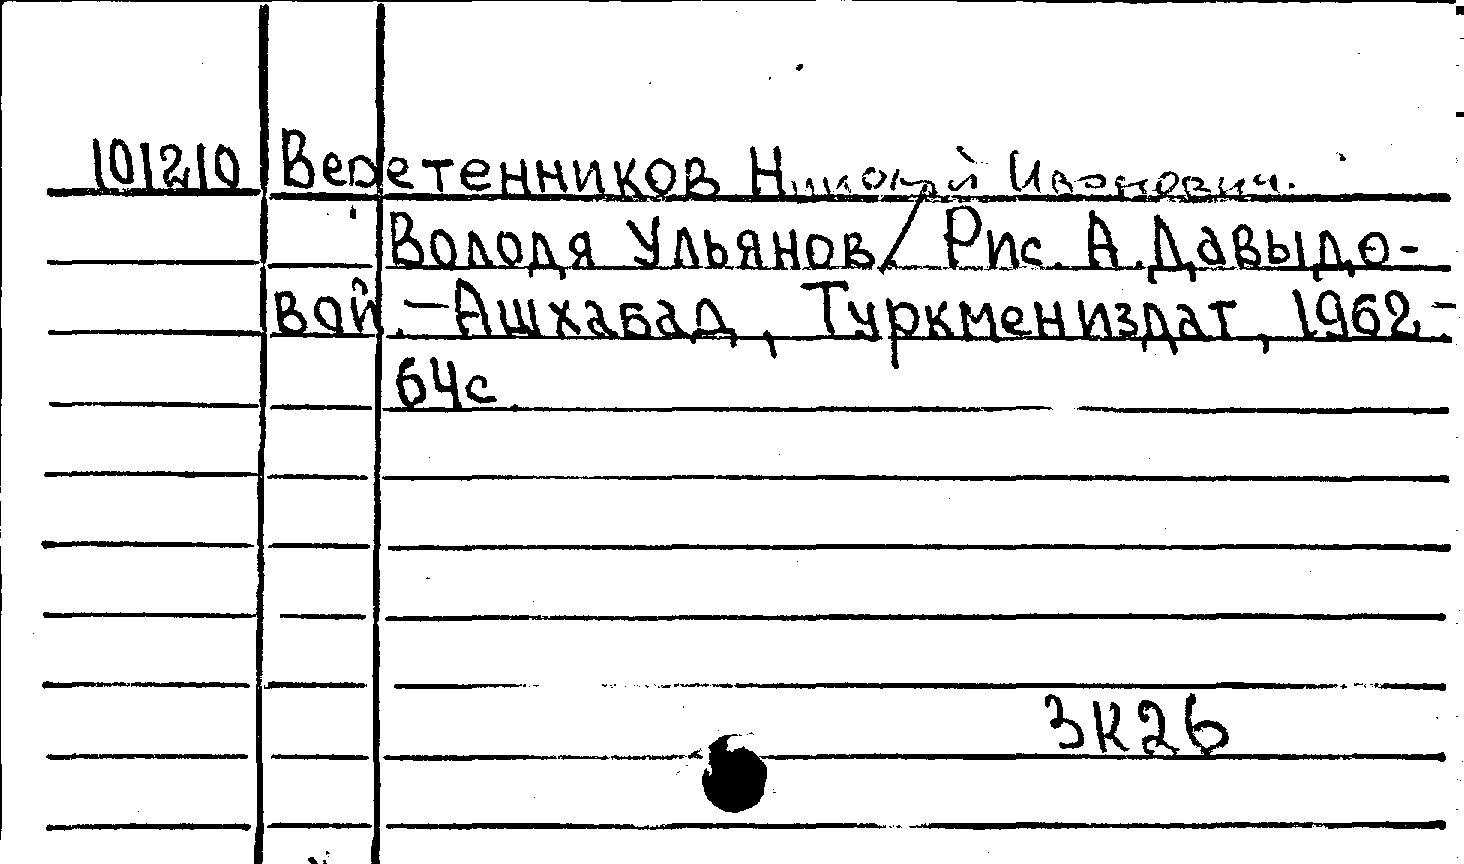 101210 Веретенников Николай Иванович.
Володя Ульянов/ Рис. А.Давыдо-
вой.-Ашхабад, Туркмениздат, 1962.-
64с.
3К26